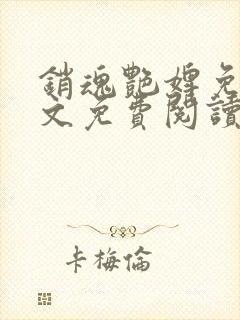 銷魂艷婢免
文免費閱讀
卡梅倫